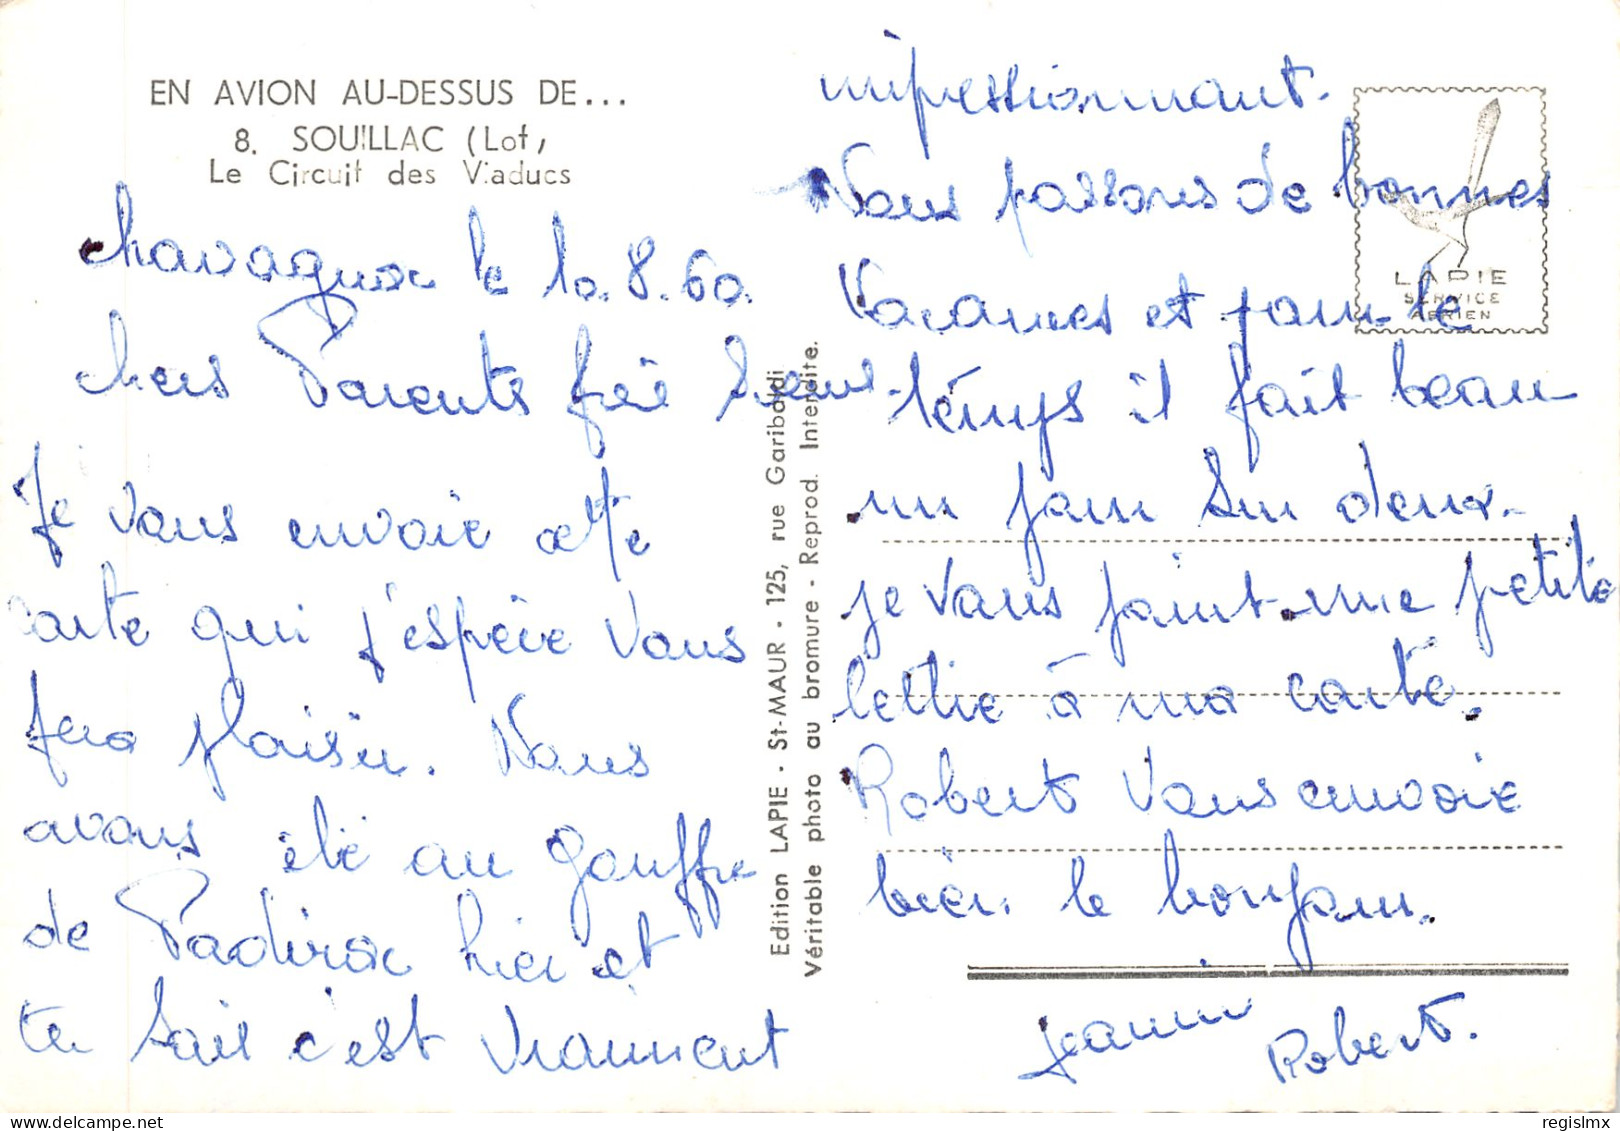 EN AVION AU-DESSUS DE...
8. SOUILLAC (Lot)
Le Circuit des Viaducs
chavagnac le 10.8.60.
chers Parents frère
Je vous envoie cette
carte qui j'espère vous
fera plaisir. Nous
avons été au gouffre
de Padirac hier et
tu sais c'est vraiment
Edition LAPIE - St-MAUR - 125, rue Garibaldi
Véritable photo au bromure - Reprod. Interdite.
impressionnant.
Nous passons de bonnes
Vacances et pour le
temps il fait beau
un jour sur deux.
je vous joint une petite
lettre à ma carte.
Robert vous envoie
bien le bonjour.
Jeanine
Robert.
LAPIE
SERVICE
AERIEN
© regislmx